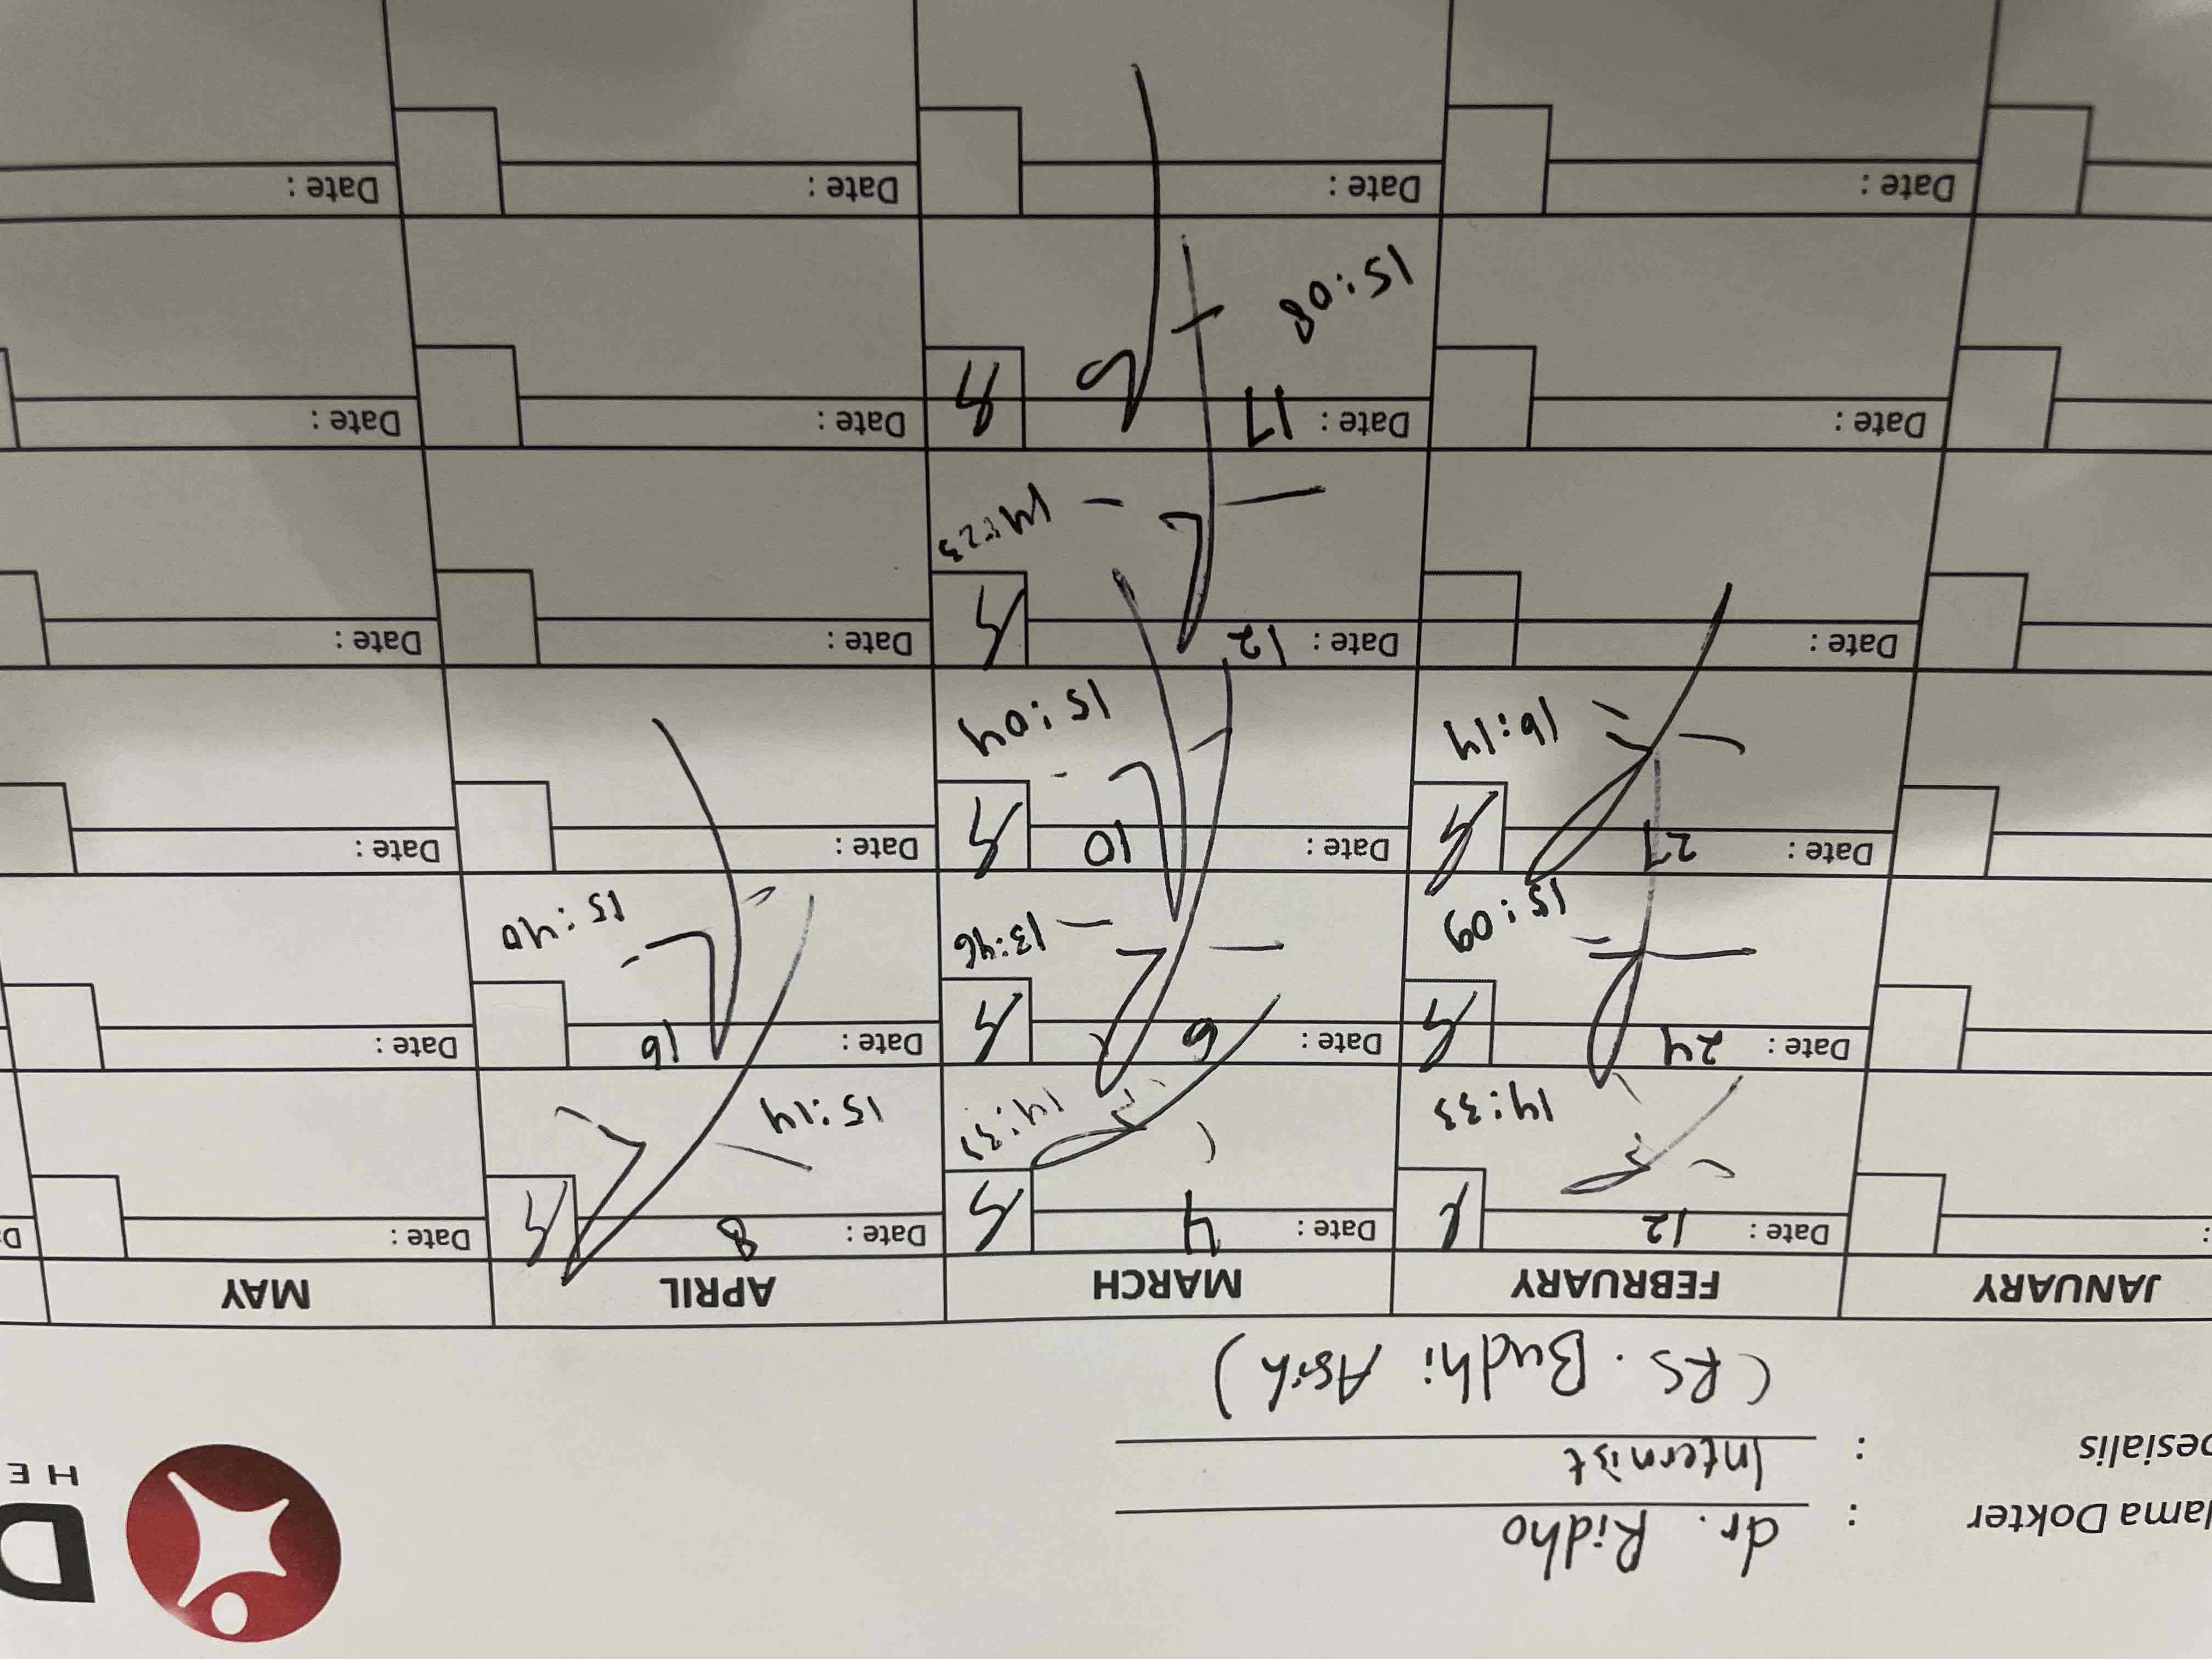 D
HE
Nama Dokter : dr. Ridho
pesialis : Internist
(RS. Budhi Asih)
JANUARY FEBRUARY MARCH APRIL MAY
Date : 12 Date : 4 Date : 8 Date :
14:33 15:14
Date : 24 Date : 6 Date : 16 Date :
15:09 13:46 15:40
Date : 27 Date : 10 Date : Date :
16:14 15:04
Date : Date : 12 Date : Date :
14:23
Date : Date : 17 Date : Date :
15:08
Date : Date : Date : Date :